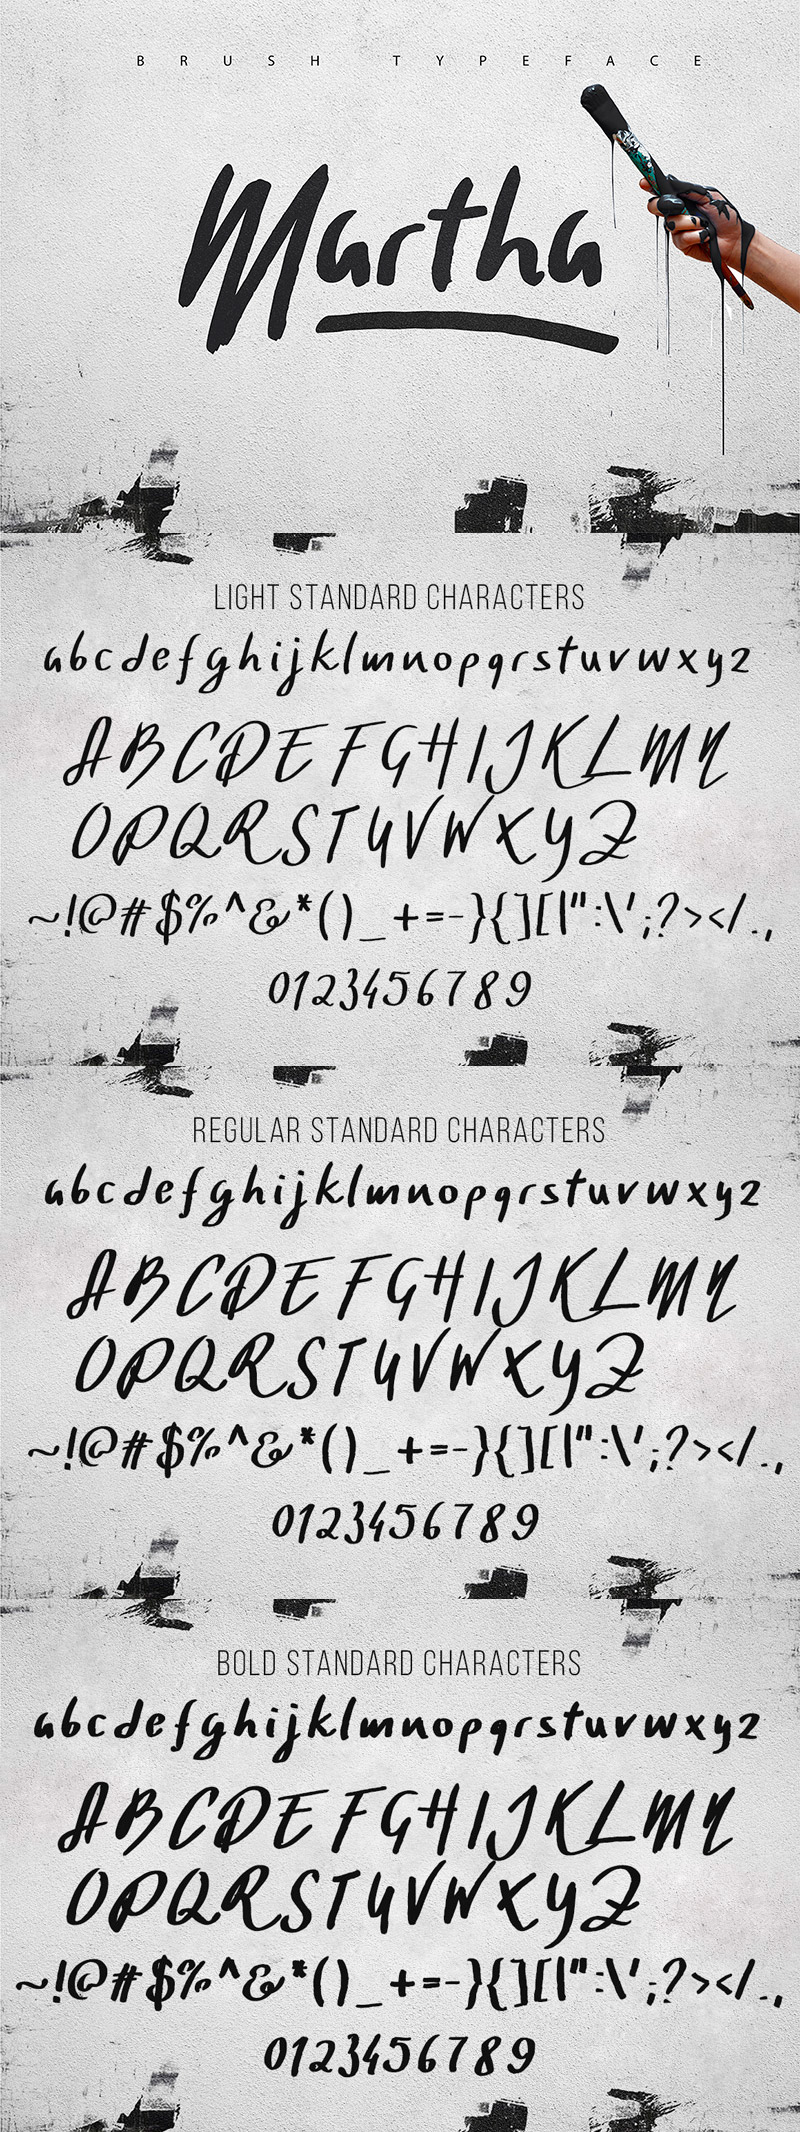 BRUSH TYPEFACE
Martha
LIGHT STANDARD CHARACTERS
abcdefghijklmnopqrstuvwxyz
ABCDEFGHIJKLMN
OPQRSTUVWXYZ
~!@#$%^&*()_+=-}{][|":\';?></.,
0123456789
REGULAR STANDARD CHARACTERS
abcdefghijklmnopqrstuvwxyz
ABCDEFGHIJKLMN
OPQRSTUVWXYZ
~!@#$%^&*()_+=-}{][|":\';?></.,
0123456789
BOLD STANDARD CHARACTERS
abcdefghijklmnopqrstuvwxyz
ABCDEFGHIJKLMN
OPQRSTUVWXYZ
~!@#$%^&*()_+=-}{][|":\';?></.,
0123456789